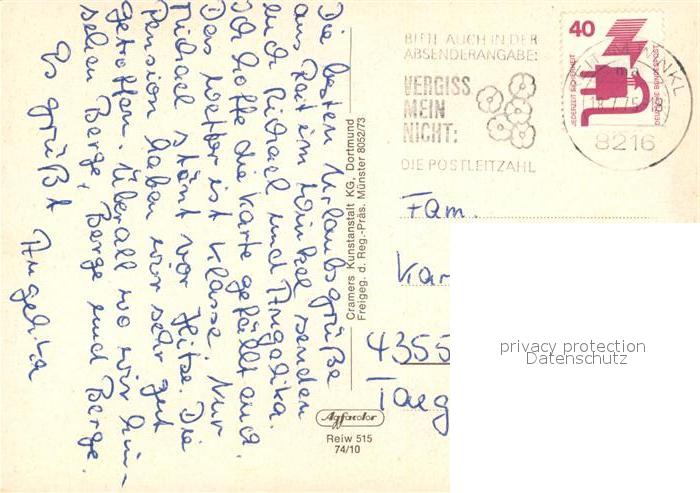 Die besten Urlaubsgrüße
aus Reit im Winkel senden
euch Michael und Angelika.
Ich hoffe die Karte gefällt euch.
Das Wetter ist Klasse. Nur
Michael stönt vor Hitze. Die
Pension haben wir sehr gut
getroffen. Überall wo wir hin-
sehen Berge, Berge und Berge.
Es grüßt Angelika
Cramers Kunstanstalt KG. Dortmund
Freigeg. d. Reg.-Präs. Münster 8052/73
Agfacolor
Reiw 515
74/10
BITTE AUCH IN DER
ABSENDERANGABE:
VERGISS
MEIN
NICHT:
DIE POSTLEITZAHL
40
JEDERZEIT SICHERHEIT
DEUTSCHE BUNDESPOST
8216
Fam.
Kar
4355
privacy protection
Datenschutz